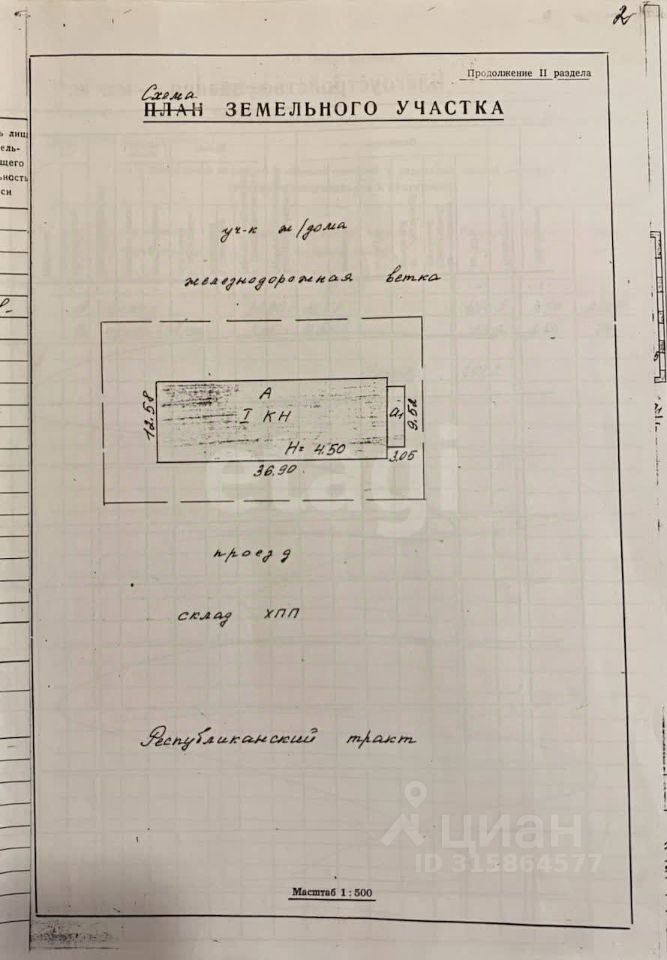 2
Продолжение II раздела
Схема
ПЛАН ЗЕМЕЛЬНОГО УЧАСТКА
ь лищ
ель-
щего
ьность
си
уч-к ж/дома
железнодорожная ветка
12.58
А
I КН
а₁
9.52
Н= 4.50
3.05
36.90
etagi
проезд
склад ХПП
Республиканский тракт
циан
ID 315864577
Масштаб 1 : 500